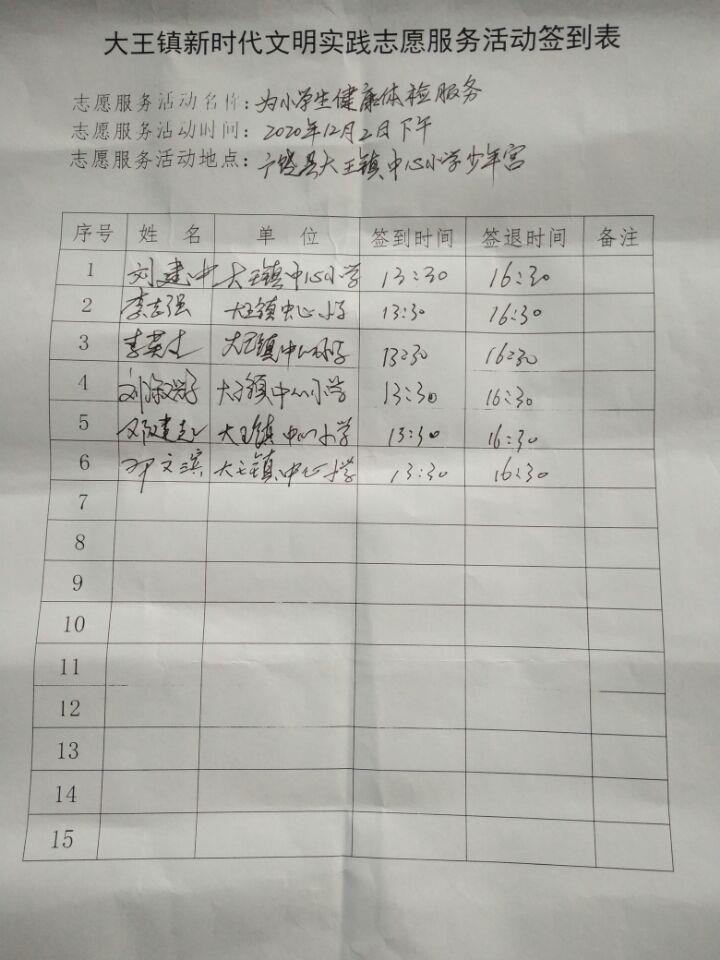 大王镇新时代文明实践志愿服务活动签到表
志愿服务活动名称：为小学生健康体检服务
志愿服务活动时间：2020年12月2日下午
志愿服务活动地点：广饶县大王镇中心小学少年宫
序号 姓名 单位 签到时间 签退时间 备注
1 刘建中 大王镇中心小学 13:30 16:30
2 李志强 大王镇中心小学 13:30 16:30
3 李英 大王镇中心小学 13:30 16:30
4 刘淑 大王镇中心小学 13:30 16:30
5 邓建 大王镇中心小学 13:30 16:30
6 文滨 大王镇中心小学 13:30 16:30
7
8
9
10
11
12
13
14
15